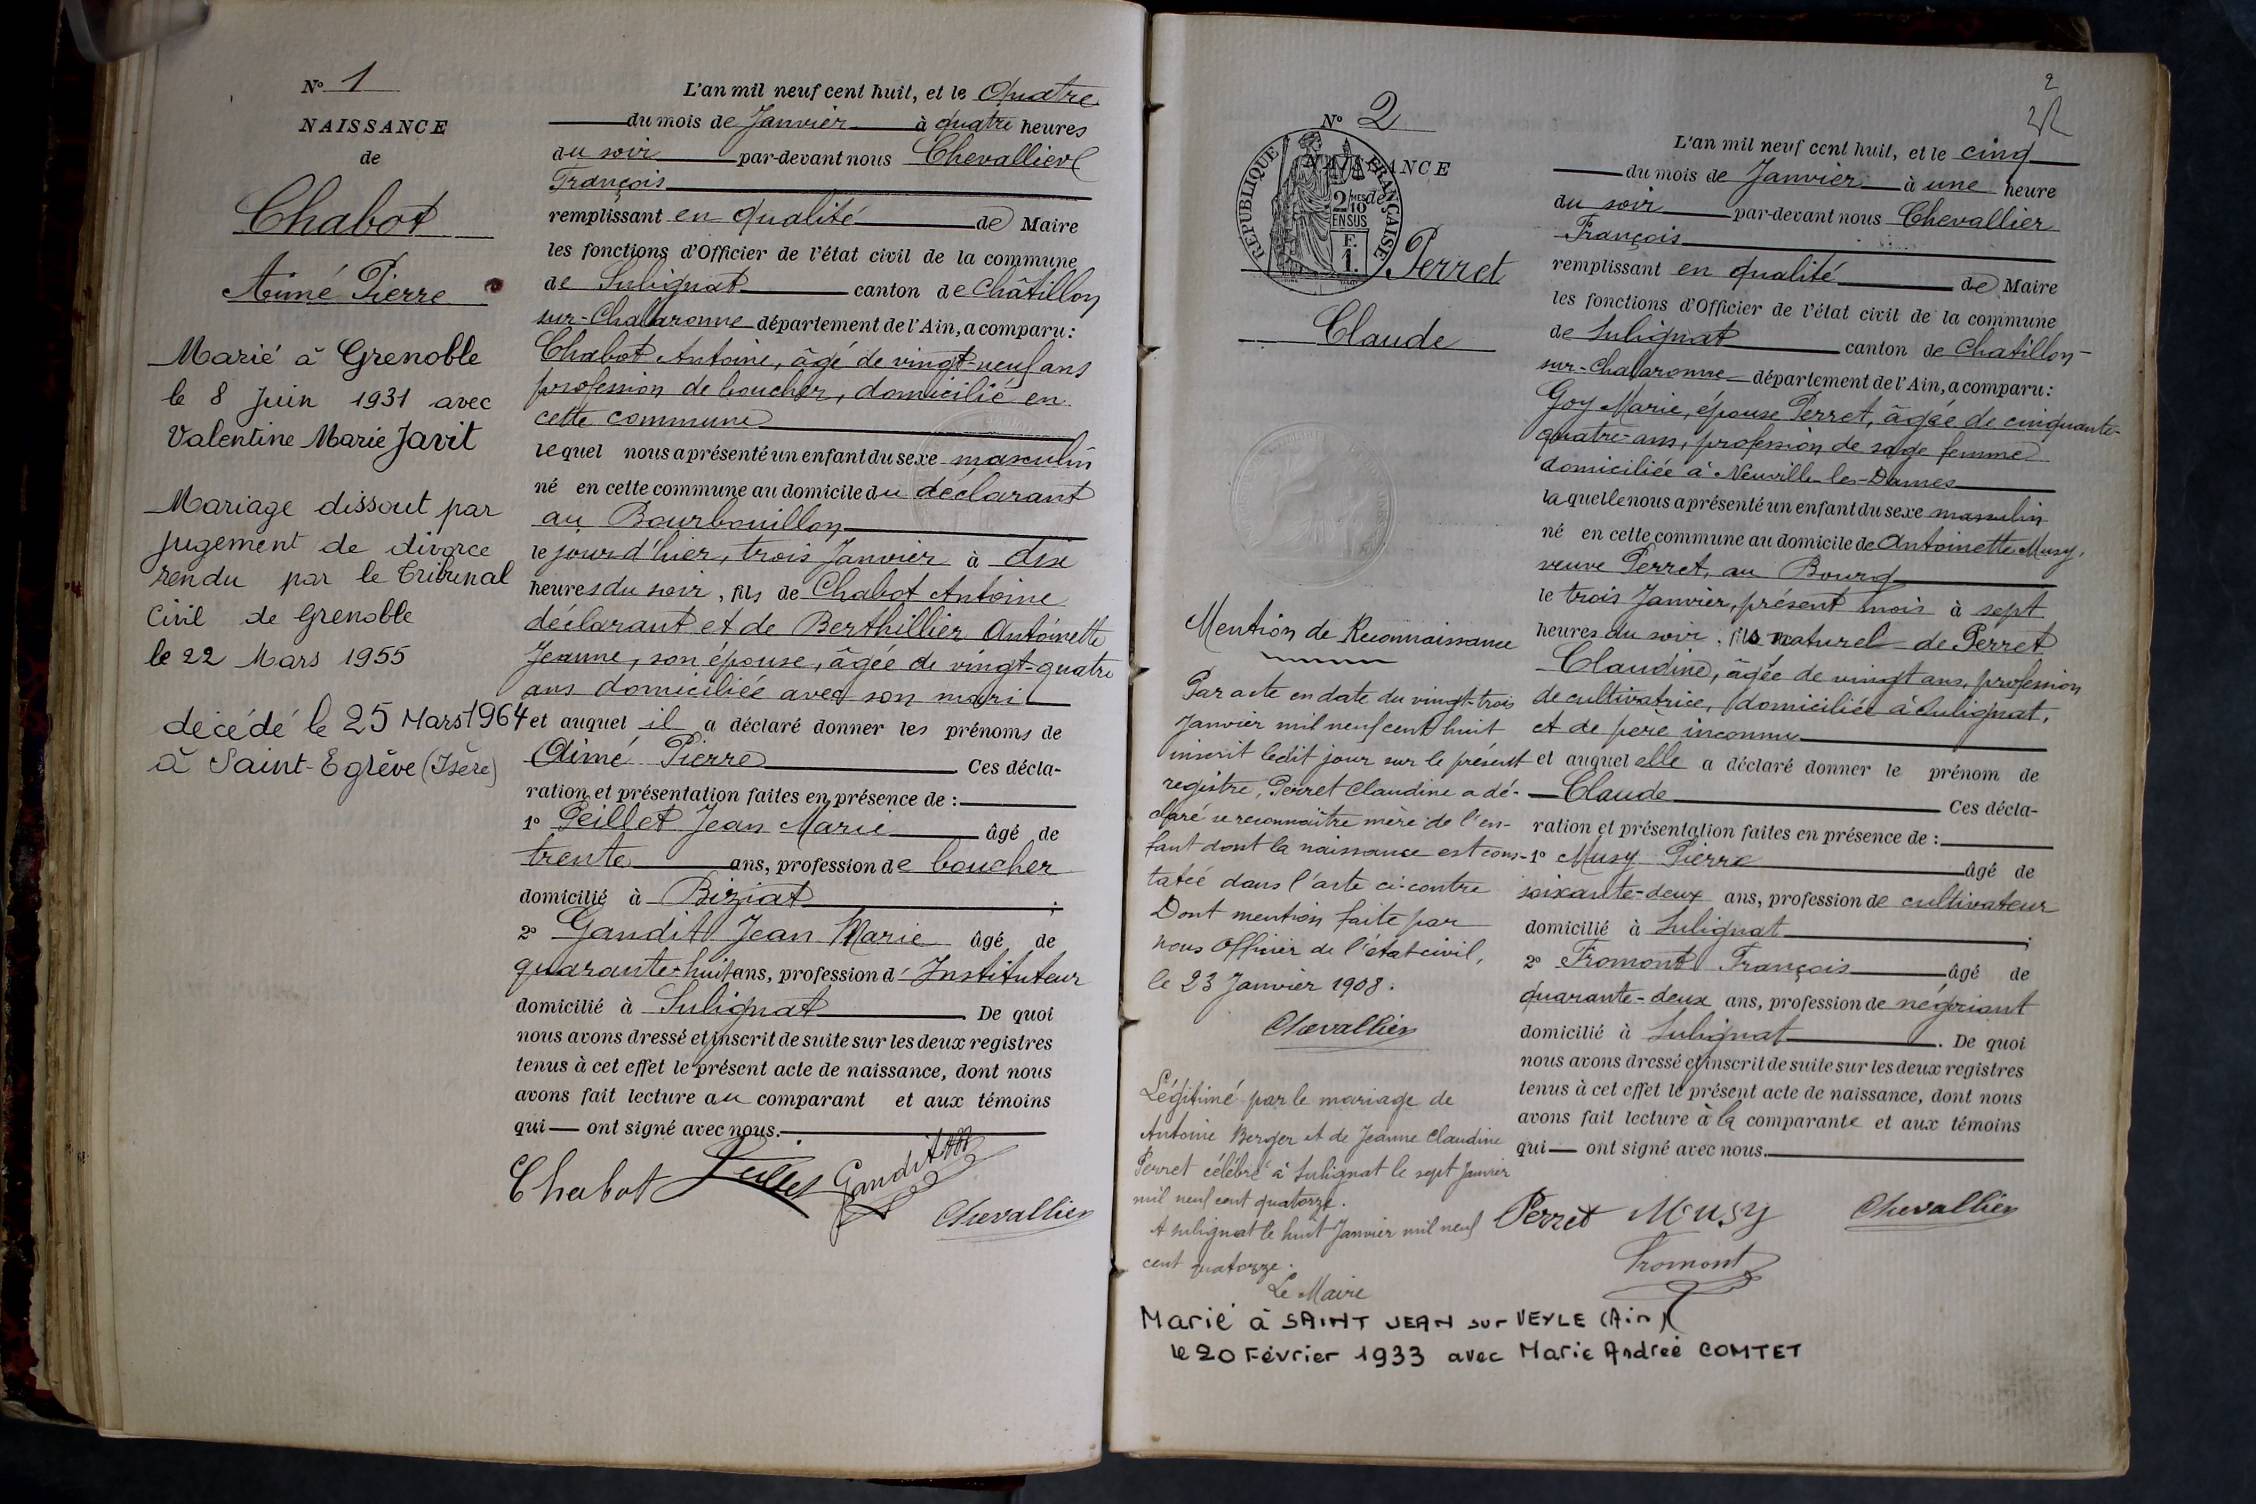 N° 1
NAISSANCE
de
Chabot
Aimé Pierre
Marié à Grenoble
le 8 Juin 1931 avec
Valentine Marie Javit
Mariage dissout par
jugement de divorce
rendu par le Tribunal
Civil de Grenoble
le 22 Mars 1955
décédé le 25 Mars 1964
à Saint-Egrève (Isère)
L'an mil neuf cent huit, et le Quatre
du mois de Janvier à quatre heures
du soir par-devant nous Chevallier
François
remplissant en qualité de Maire
les fonctions d'Officier de l'état civil de la commune
de Sulignat canton de Châtillon
sur-Chalaronne département de l'Ain, a comparu :
Chabot Antoine, âgé de vingt-neuf ans
profession de boucher, domicilié en
cette commune
lequel nous a présenté un enfant du sexe masculin
né en cette commune au domicile du déclarant
au Bourbouillon
le jour d'hier, trois Janvier à dix
heures du soir, fils de Chabot Antoine
déclarant et de Berthillier Antoinette
Jeanne, son épouse, âgée de vingt-quatre
ans domiciliée avec son mari
et auquel il a déclaré donner les prénoms de
Aimé Pierre Ces décla-
ration et présentation faites en présence de :
1° Peillet Jean Marie âgé de
trente ans, profession de boucher
domicilié à Biziat ;
2° Gandit Jean Marie âgé de
quarante-huit ans, profession d'Instituteur
domicilié à Sulignat De quoi
nous avons dressé et inscrit de suite sur les deux registres
tenus à cet effet le présent acte de naissance, dont nous
avons fait lecture au comparant et aux témoins
qui — ont signé avec nous.
Chabot Peillet Gandit JM
Chevallier
2
N° 2
NAISSANCE
de
RÉPUBLIQUE FRANÇAISE
2 MES
10
EN SUS
F.
1.
Perret
Claude
Mention de Reconnaissance
Par acte en date du vingt-trois
Janvier mil neuf cent huit
inscrit ledit jour sur le présent
registre, Perret Claudine a dé-
claré se reconnaître mère de l'en-
fant dont la naissance est cons-
tatée dans l'acte ci-contre
Dont mention faite par
nous Officier de l'état civil,
le 23 Janvier 1908.
Chevallier
Légitimé par le mariage de
Antoine Berger et de Jeanne Claudine
Perret célébré à Sulignat le sept Janvier
mil neuf cent quatorze.
A Sulignat le huit Janvier mil neuf
cent quatorze.
Le Maire
Marié à SAINT JEAN sur VEYLE (Ain)
le 20 Février 1933 avec Marie Andrée COMTET
L'an mil neuf cent huit, et le cinq
du mois de Janvier à une heure
du soir par-devant nous Chevallier
François
remplissant en qualité de Maire
les fonctions d'Officier de l'état civil de la commune
de Sulignat canton de Chatillon-
sur-Chalaronne département de l'Ain, a comparu :
Goy Marie, épouse Perret, âgée de cinquante-
quatre-ans, profession de sage femme
domiciliée à Neuville-les-Dames
laquelle nous a présenté un enfant du sexe masculin
né en cette commune au domicile de Antoinette Musy,
veuve Perret, au Bourg
le trois Janvier, présent mois à sept
heures du soir, fils naturel de Perret
Claudine, âgée de vingt ans, profession
de cultivatrice, domiciliée à Sulignat,
et de père inconnu
et auquel elle a déclaré donner le prénom de
Claude Ces décla-
ration et présentation faites en présence de :
1° Musy Pierre âgé de
soixante-deux ans, profession de cultivateur
domicilié à Sulignat ;
2° Fromont François âgé de
quarante-deux ans, profession de négociant
domicilié à Sulignat . De quoi
nous avons dressé et inscrit de suite sur les deux registres
tenus à cet effet le présent acte de naissance, dont nous
avons fait lecture à la comparante et aux témoins
qui — ont signé avec nous.
Perret Musy Chevallier
Fromont